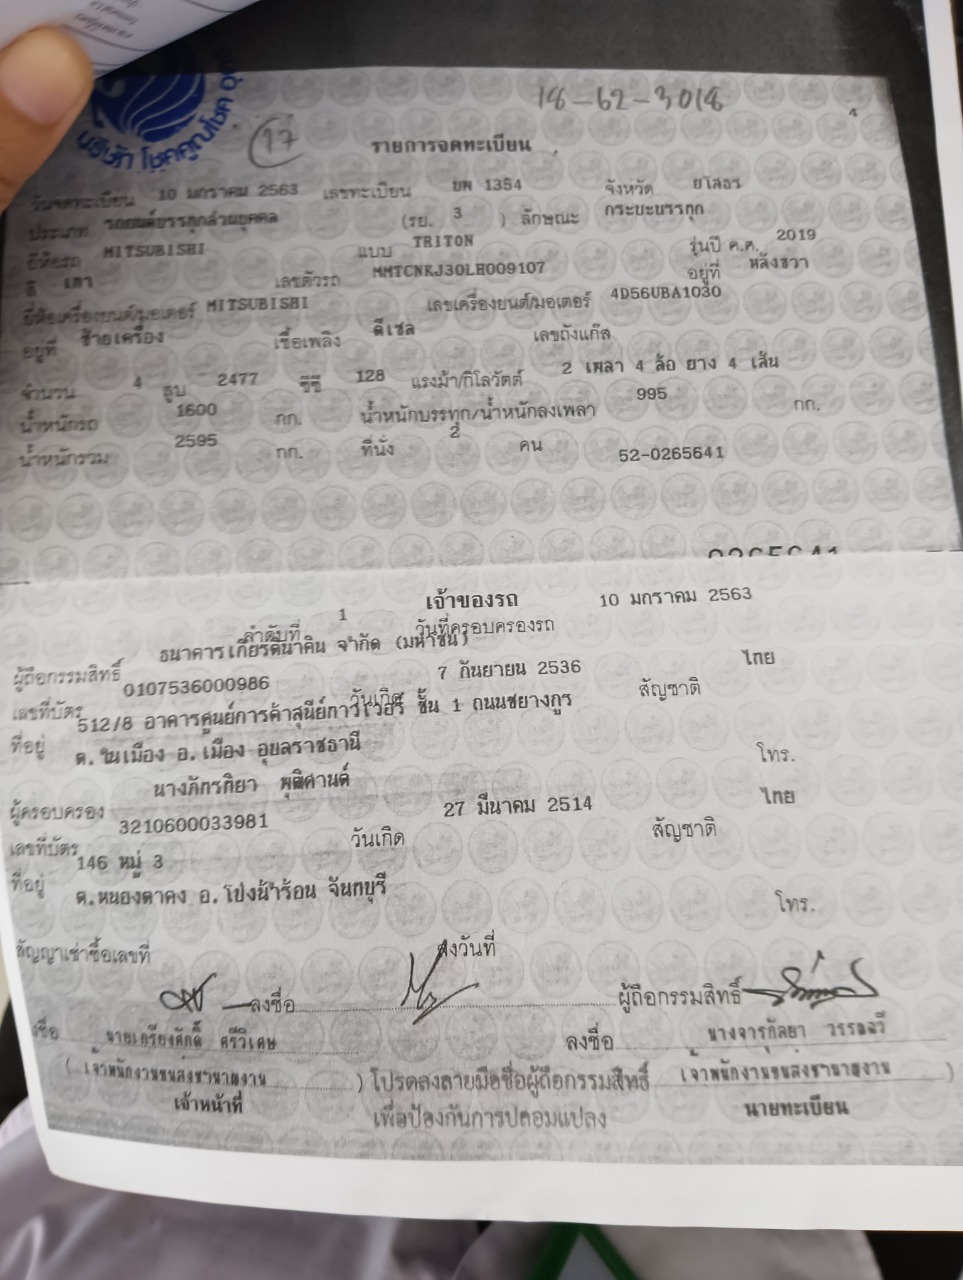 18-62-3018
4
17
บริษัท โชคคูณโชค
รายการจดทะเบียน
วันจดทะเบียน 10 มกราคม 2563 เลขทะเบียน บพ 1354 จังหวัด ยโสธร
ประเภท รถยนต์บรรทุกส่วนบุคคล (รย. 3 ) ลักษณะ กระบะบรรทุก
ยี่ห้อรถ MITSUBISHI แบบ TRITON รุ่นปี ค.ศ. 2019
สี เทา เลขตัวรถ MMTCNKJ30LH009107 อยู่ที่ หลังขวา
ยี่ห้อเครื่องยนต์/มอเตอร์ MITSUBISHI เลขเครื่องยนต์/มอเตอร์ 4D56UBA1030
อยู่ที่ ซ้ายเครื่อง เชื้อเพลิง ดีเซล เลขถังแก๊ส
จำนวน 4 สูบ 2477 ซีซี 128 แรงม้า/กิโลวัตต์ 2 เพลา 4 ล้อ ยาง 4 เส้น
น้ำหนักรถ 1600 กก. น้ำหนักบรรทุก/น้ำหนักลงเพลา 995 กก.
น้ำหนักรวม 2595 กก. ที่นั่ง 2 คน 52-0265641
เจ้าของรถ
ลำดับที่ 1 วันที่ครอบครองรถ 10 มกราคม 2563
ผู้ถือกรรมสิทธิ์ ธนาคารเกียรตินาคิน จำกัด (มหาชน)
เลขที่บัตร 0107536000986 วันเกิด 7 กันยายน 2536 สัญชาติ ไทย
ที่อยู่ 512/8 อาคารศูนย์การค้าสุนีย์ทาวเวอร์ ชั้น 1 ถนนชยางกูร
ต.ในเมือง อ.เมือง อุบลราชธานี โทร.
ผู้ครอบครอง นางภัทรทิยา
เลขที่บัตร 3210600033981 วันเกิด 27 มีนาคม 2514 สัญชาติ ไทย
ที่อยู่ 146 หมู่ 3
ต.หนองตาคง อ.โป่งน้ำร้อน จันทบุรี โทร.
สัญญาเช่าซื้อเลขที่ ลงวันที่
ลงชื่อ ผู้ถือกรรมสิทธิ์
ลงชื่อ นายเกรียงศักดิ์ ศรีวิเศษ ลงชื่อ นางจารุกัลยา วรรณวี
( เจ้าพนักงานขนส่งชำนาญงาน ) โปรดลงลายมือชื่อผู้ถือกรรมสิทธิ์ ( เจ้าพนักงานขนส่งชำนาญงาน )
เจ้าหน้าที่ เพื่อป้องกันการปลอมแปลง นายทะเบียน